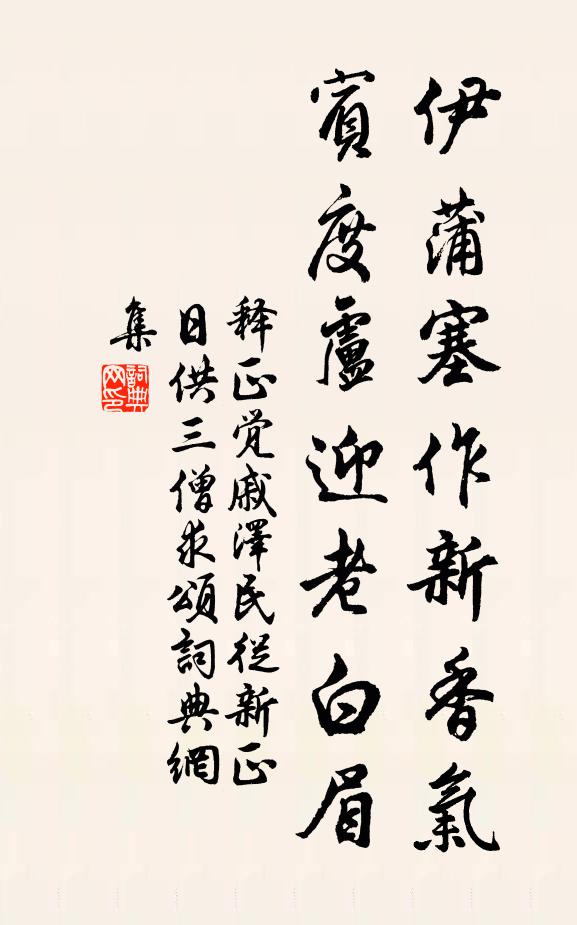 伊蒲塞作新香氣
賓度盧迎老白眉
释正覚戚澤民從新正
日供三僧求頌詞典網
集
詞典
网印